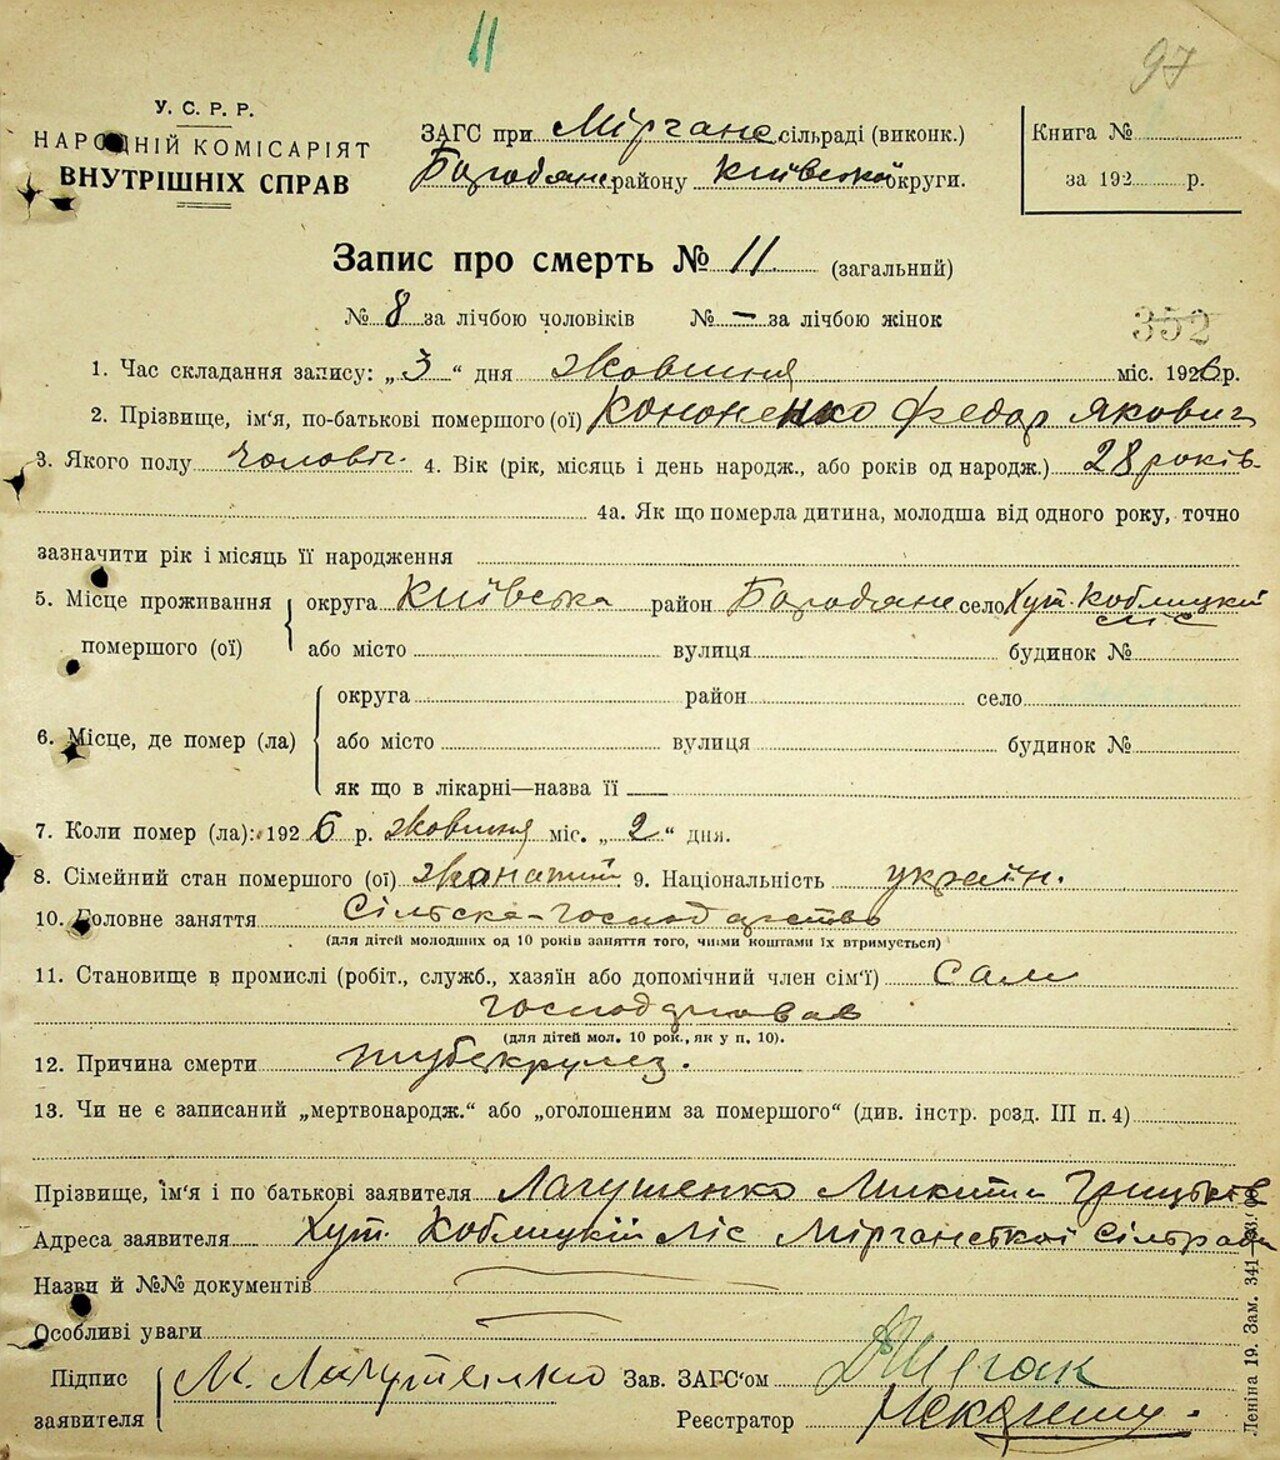 11
97
У. С. Р. Р.
НАРОДНІЙ КОМІСАРІЯТ
ВНУТРІШНІХ СПРАВ
ЗАГС при Мірчанс сільраді (виконк.)
Бородянс району Київської округи.
Книга №
за 192 р.
Запис про смерть № 11 (загальний)
№ 8 за лічбою чоловіків № – за лічбою жінок
352
1. Час складання запису: „3“ дня жовтня міс. 1926 р.
2. Прізвище, ім'я, по-батькові помершого (ої) Кононенко Федор Якович
3. Якого полу чоловіч. 4. Вік (рік, місяць і день народж., або років од народж.) 28 років
4а. Як що померла дитина, молодша від одного року, точно
зазначити рік і місяць її народження
5. Місце проживання помершого (ої) округа Київська район Бородянс село Хут. Коблицкій ліс
або місто вулиця будинок №
6. Місце, де помер (ла) округа район село
або місто вулиця будинок №
як що в лікарні—назва її
7. Коли помер (ла): 1926 р. жовтня міс. „2“ дня.
8. Сімейний стан помершого (ої) жонатий 9. Національність україн.
10. Головне заняття Сільске-господарство
(для дітей молодших од 10 років заняття того, чиїми коштами їх втримується)
11. Становище в промислі (робіт., служб., хазяїн або допомічний член сім'ї) Сам
господарював
(для дітей мол. 10 рок., як у п. 10).
12. Причина смерти туберкульз.
13. Чи не є записаний „мертвонародж.“ або „оголошеним за помершого“ (див. інстр. розд. III п. 4)
Прізвище, ім'я і по батькові заявителя Лагутенко Микита Грицьків
Адреса заявителя Хут. Коблицкій Ліс Мірчанської Сільради
Назви й №№ документів
Особливі уваги
Підпис заявителя М. Лагутенко Зав. ЗАГС'ом
Реєстратор
Леніна 19. Зам. 341